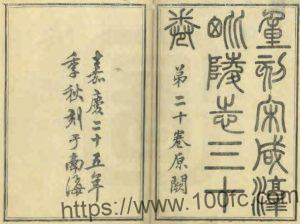 重刻宋咸淳
毗陵志三十
卷
第二十卷原闕
嘉慶二十五年
季秋刻于南海
https://www.100fc.com